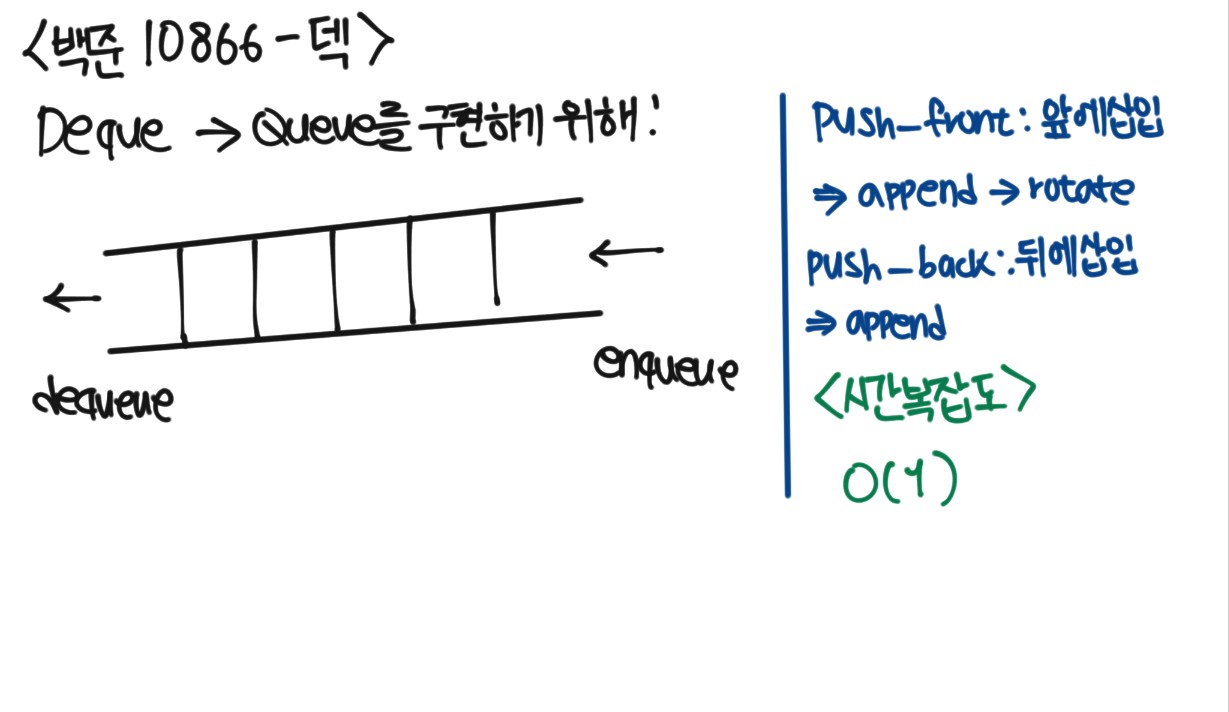 <백준 10866 - 덱>
Deque → Queue를 구현하기 위해!
dequeue
enqueue
push_front : 앞에삽입
⇒ append → rotate
push_back : 뒤에삽입
⇒ append
<시간복잡도>
O(1)